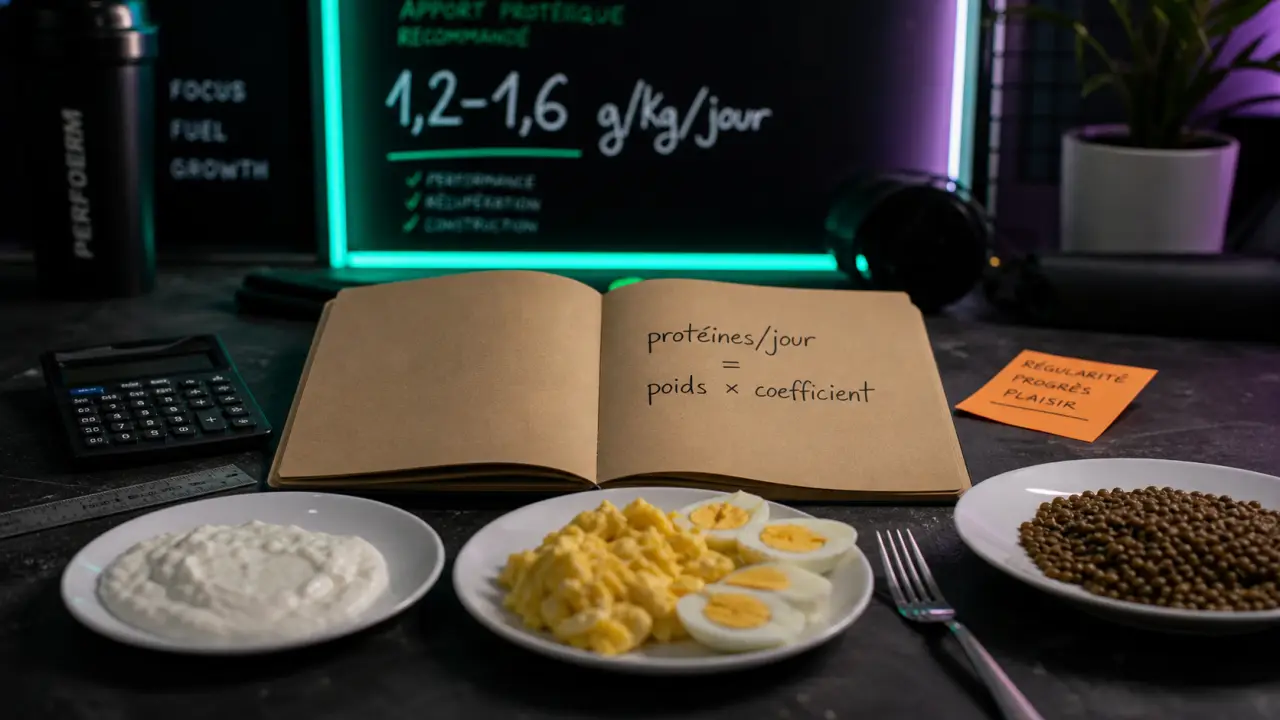 APPORT PROTÉIQUE
RECOMMANDÉ
1,2-1,6 g/kg/jour
✓ PERFORMANCE
✓ RÉCUPÉRATION
✓ CONSTRUCTION
FOCUS
FUEL
GROWTH
PERFOERM
protéines/jour
=
poids × coefficient
RÉGULARITÉ
PROGRÈS
PLAISIR